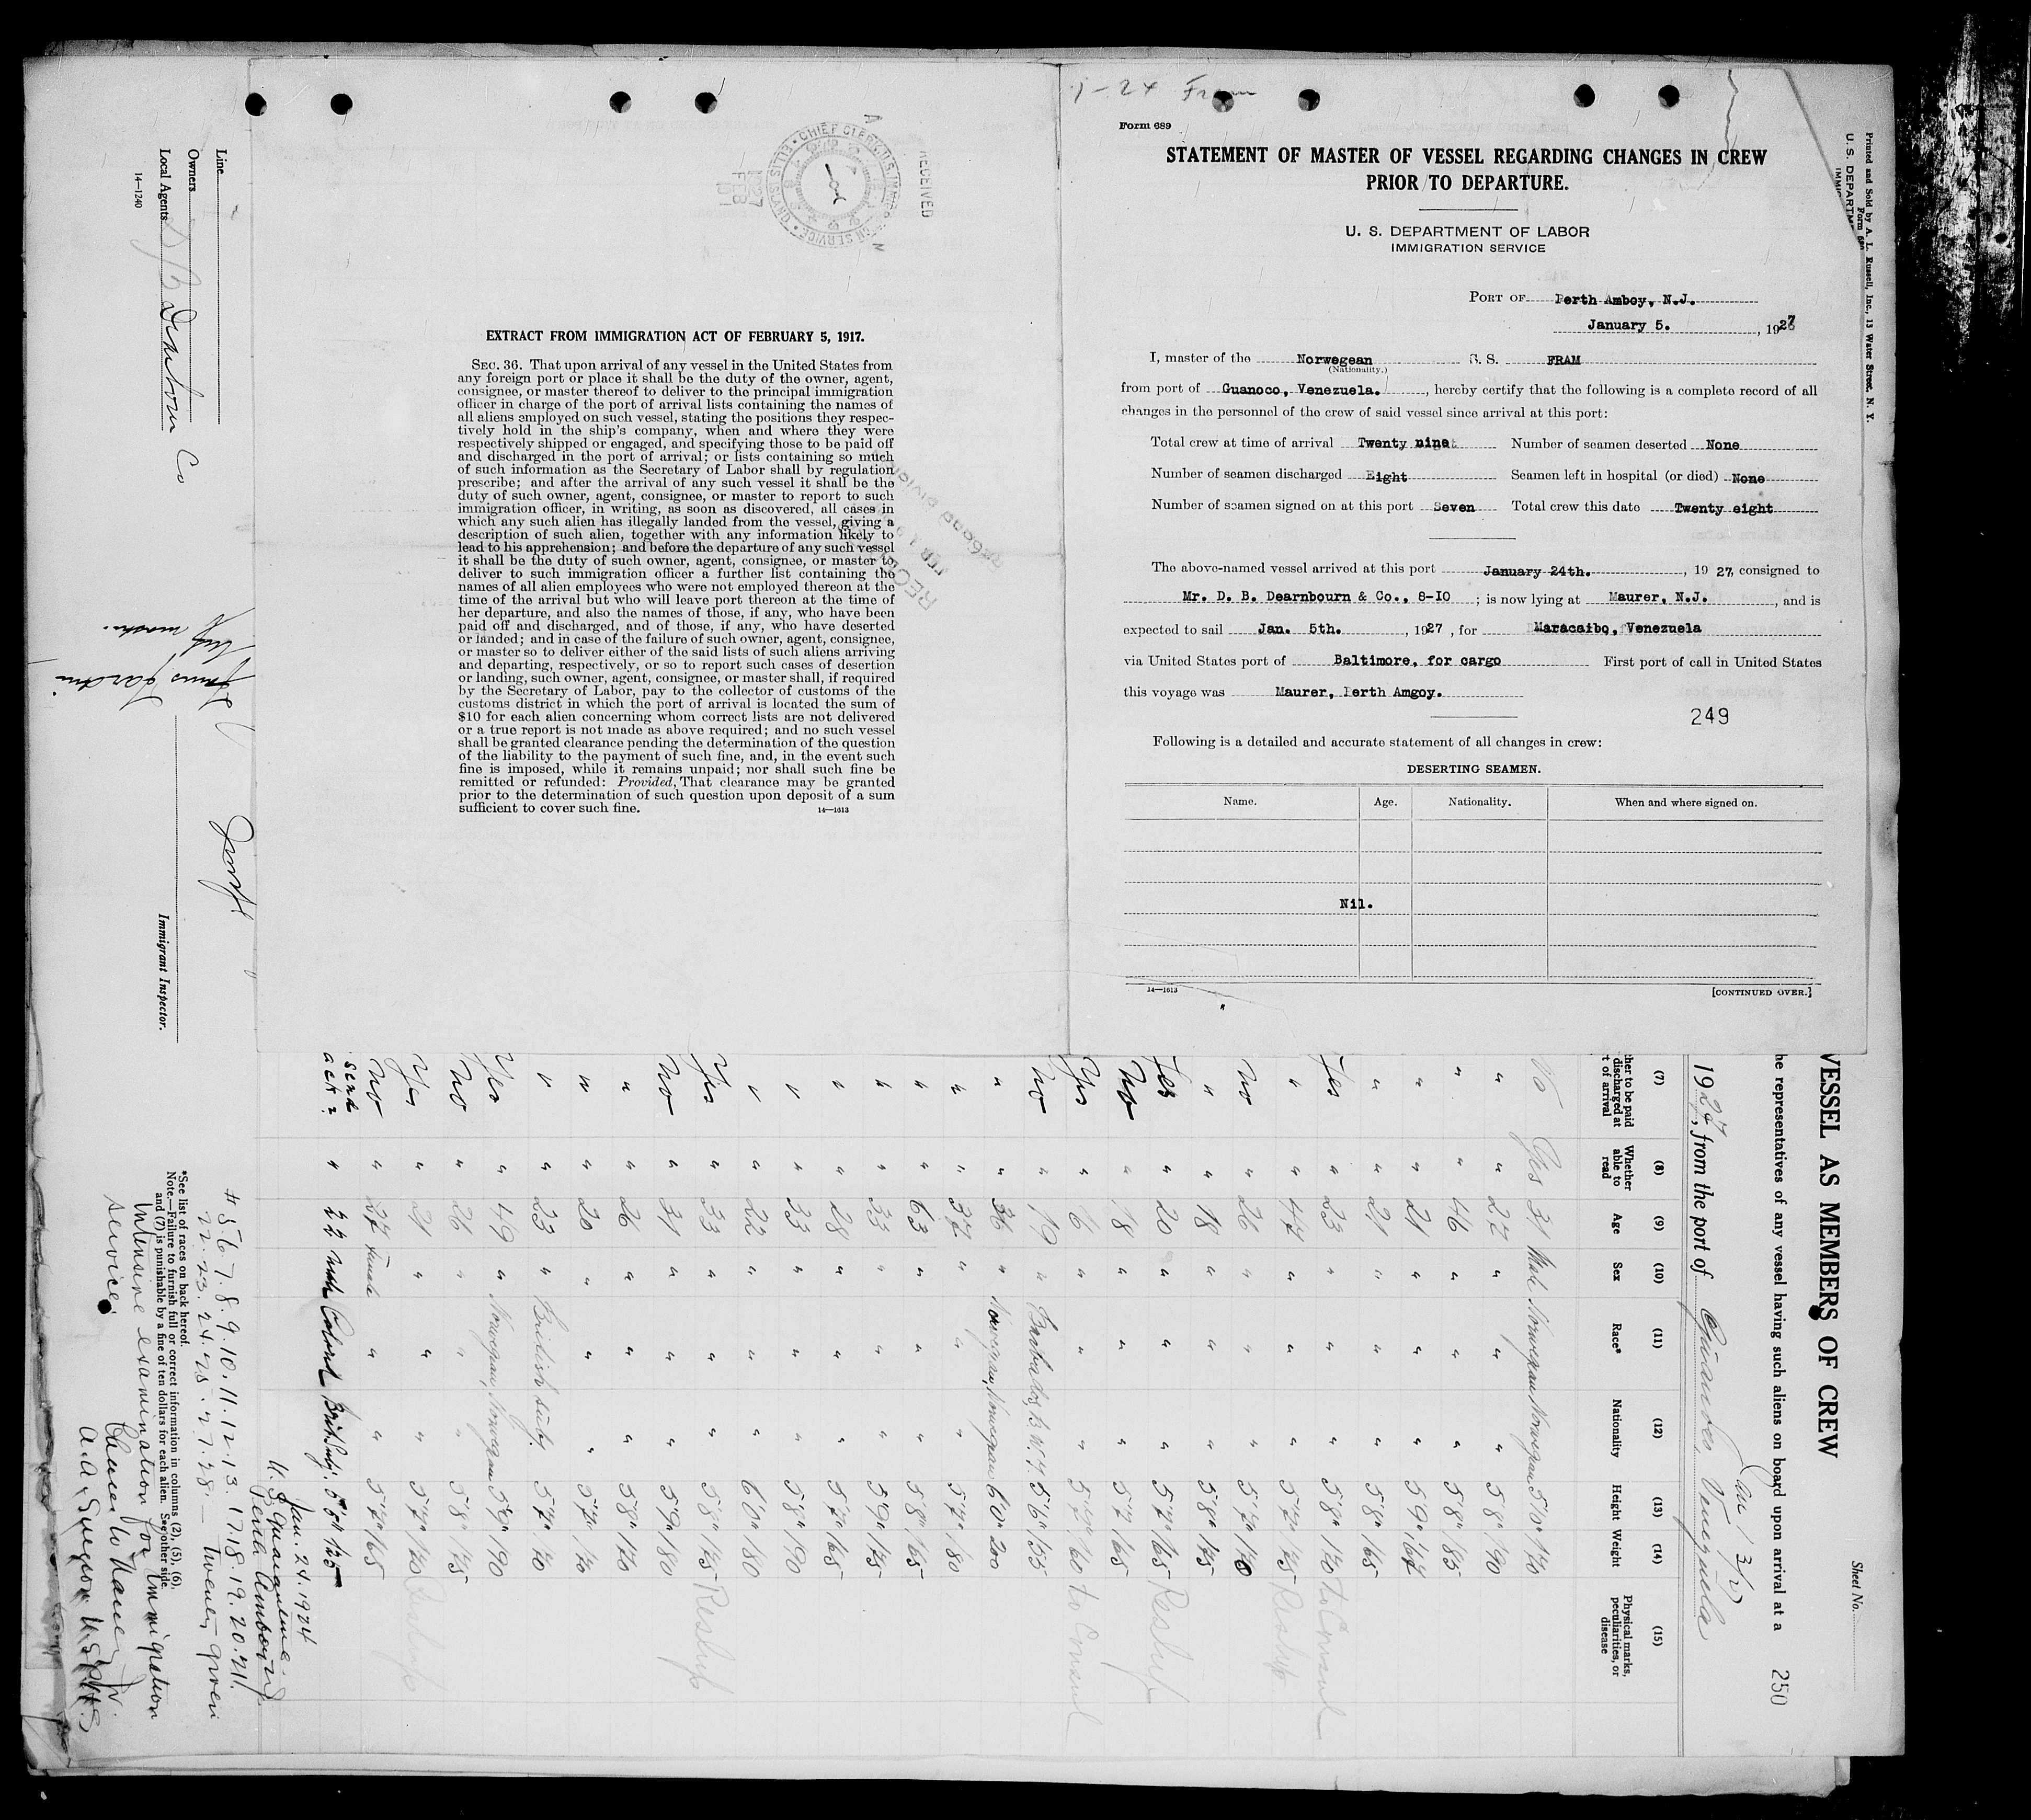 1-24 Fram
Form 689
STATEMENT OF MASTER OF VESSEL REGARDING CHANGES IN CREW
PRIOR TO DEPARTURE.
U. S. DEPARTMENT OF LABOR
IMMIGRATION SERVICE
PORT OF Perth Amboy, N.J.
January 5. , 1927
I, master of the Norwegean S. S. FRAM
(Nationality.)
from port of Guanoco, Venezuela. , hereby certify that the following is a complete record of all
changes in the personnel of the crew of said vessel since arrival at this port:
Total crew at time of arrival Twenty nine Number of seamen deserted None
Number of seamen discharged Eight Seamen left in hospital (or died) None
Number of seamen signed on at this port Seven Total crew this date Twenty eight
The above-named vessel arrived at this port January 24th. , 19 27, consigned to
Mr. D. B. Dearnbourn & Co., 8-10 ; is now lying at Maurer, N.J. , and is
expected to sail Jan. 5th. , 1927 , for Maracaibo, Venezuela
via United States port of Baltimore, for cargo First port of call in United States
this voyage was Maurer, Perth Amgoy.
249
Following is a detailed and accurate statement of all changes in crew:
DESERTING SEAMEN.
Name. Age. Nationality. When and where signed on.
Nil.
14—1613
[CONTINUED OVER.]
RECEIVED
CHIEF CLERK
ELLIS ISLAND
1927 FEB 8
EXTRACT FROM IMMIGRATION ACT OF FEBRUARY 5, 1917.
SEC. 36. That upon arrival of any vessel in the United States from
any foreign port or place it shall be the duty of the owner, agent,
consignee, or master thereof to deliver to the principal immigration
officer in charge of the port of arrival lists containing the names of
all aliens employed on such vessel, stating the positions they respec-
tively hold in the ship's company, when and where they were
respectively shipped or engaged, and specifying those to be paid off
and discharged in the port of arrival; or lists containing so much
of such information as the Secretary of Labor shall by regulation
prescribe; and after the arrival of any such vessel it shall be the
duty of such owner, agent, consignee, or master to report to such
immigration officer, in writing, as soon as discovered, all cases in
which any such alien has illegally landed from the vessel, giving a
description of such alien, together with any information likely to
lead to his apprehension; and before the departure of any such vessel
it shall be the duty of such owner, agent, consignee, or master to
deliver to such immigration officer a further list containing the
names of all alien employees who were not employed thereon at the
time of the arrival but who will leave port thereon at the time of
her departure, and also the names of those, if any, who have been
paid off and discharged, and of those, if any, who have deserted
or landed; and in case of the failure of such owner, agent, consignee,
or master so to deliver either of the said lists of such aliens arriving
and departing, respectively, or so to report such cases of desertion
or landing, such owner, agent, consignee, or master shall, if required
by the Secretary of Labor, pay to the collector of customs of the
customs district in which the port of arrival is located the sum of
$10 for each alien concerning whom correct lists are not delivered
or a true report is not made as above required; and no such vessel
shall be granted clearance pending the determination of the question
of the liability to the payment of such fine, and, in the event such
fine is imposed, while it remains unpaid; nor shall such fine be
remitted or refunded: Provided, That clearance may be granted
prior to the determination of such question upon deposit of a sum
sufficient to cover such fine.
14—1613
Printed and Sold by A. L. Russell, Inc., 13 Water Street, N. Y.
U. S. DEPARTM
Sheet No.
VESSEL AS MEMBERS OF CREW
he representatives of any vessel having such aliens on board upon arrival at a
250
1927, from the port of Guanoco Venezuela
(7) (8) (9) (10) (11) (12) (13) (14) (15)
ther to be paid discharged at t of arrival
Whether able to read
Age
Sex
Race*
Nationality
Height
Weight
Physical marks, peculiarities, or disease
No Yes 31 Male Norwegian Norwegian 5'10" 170
" " 27 " " " 5'8" 190
" " 46 " " " 5'8" 185
" " 21 " " " 5'9" 167
" " 21 " " " 5'8" 165
Yes " 23 " " " 5'8" 170 to Consul
" " 47 " " " 5'7" 175 Reship
No " 26 " " " 5'7" 170
" " 18 " " " 5'8" 175
Yes " 20 " " " 5'7" 165 Reship
No " 18 " " " 5'7" 165
Yes " " " " 160 to Consul
No " 19 " Barbados, B.W.I. 5'6" 155
" " 36 " Norwegian, Norwegian 6'0" 200
" " 37 " " " 5'7" 180
" " 63 " " " 5'8" 165
" " 33 " " " 5'9" 175
" " 28 " " " 5'7" 165
" " 33 " " " 5'8" 190
" " 22 " " " 6'0" 180
Yes " 33 " " " 5'8" 175 Reship
No " 31 " " " 5'9" 180
" " 26 " " " 5'8" 170
" " 20 " " " 5'7" 170
" " 23 " British Subj. 5'7" 170
Yes " 49 " Norwegian, Norwegian 5'9" 190
No " 26 " " " 5'8" 175
Yes " 21 " " " 5'7" 170 Reship
No " 27 Female " " 5'7" 165
" 22 Male Colored Brit. Subj. 5'8" 125
Line
Owners
Local Agents D B Dearborn Co
14—1240
Immigrant Inspector.
*See list of races on back hereof.
Note.—Failure to furnish full or correct information in columns (2), (5), (6),
and (7) is punishable by a fine of ten dollars for each alien. See other side.
Jan. 24. 1927
U. S. Quarantine
Perth Amboy N.J.
# 5 6. 7. 8. 9. 10. 11. 12. 13. 17. 18. 19. 20. 21.
22. 23. 24. 25. 27. 28. — Twenty given
intensive examination for Immigration
service.
A. A. Surgeon U.S.P.H.S